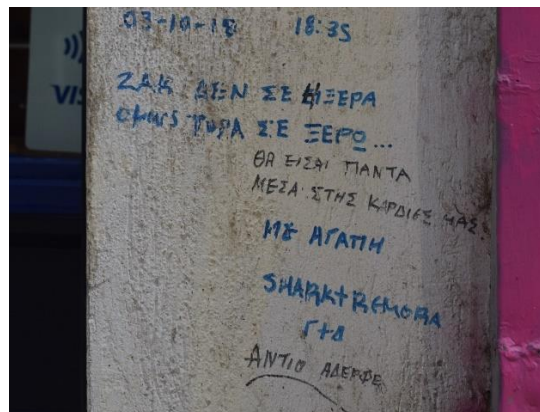 VIS
03-10-18 18:35
ΖΑΚ ΔΕΝ ΣΕ ΗΞΕΡΑ
ομως ΤΩΡΑ ΣΕ ΞΕΡΩ...
ΘΑ ΕΙΣΑΙ ΠΑΝΤΑ
ΜΕΣΑ ΣΤΗΣ ΚΑΡΔΙΕΣ ΜΑΣ.
ΜΕ ΑΓΑΠΗ
SHARK+REMORA
Γ+Δ
ΑΝΤΙΟ ΑΔΕΡΦΕ